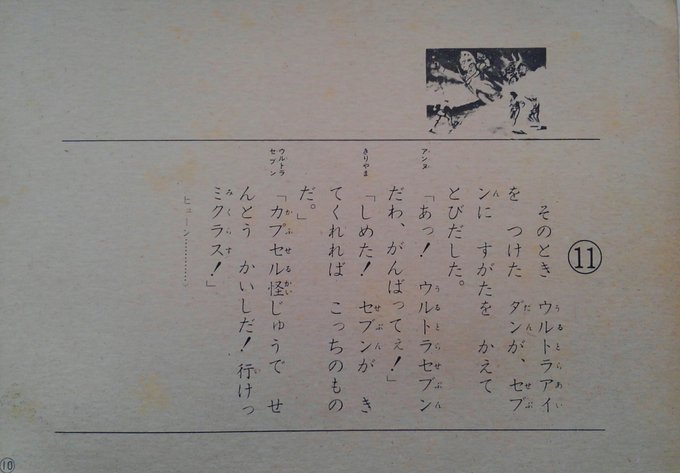 ⑪
そのとき ウルトラアイ
を つけた ダンが、セブ
ンに すがたを かえて
とびだした。
アンヌ
「あっ! ウルトラセブン
だわ、がんばってぇ!」
きりやま
「しめた! セブンが き
てくれれば こっちのもの
だ。」
ウルトラ
セブン
「カプセル怪じゅうで せ
んとう かいしだ! 行けっ
ミクラス!」
ヒューン…………
⑩